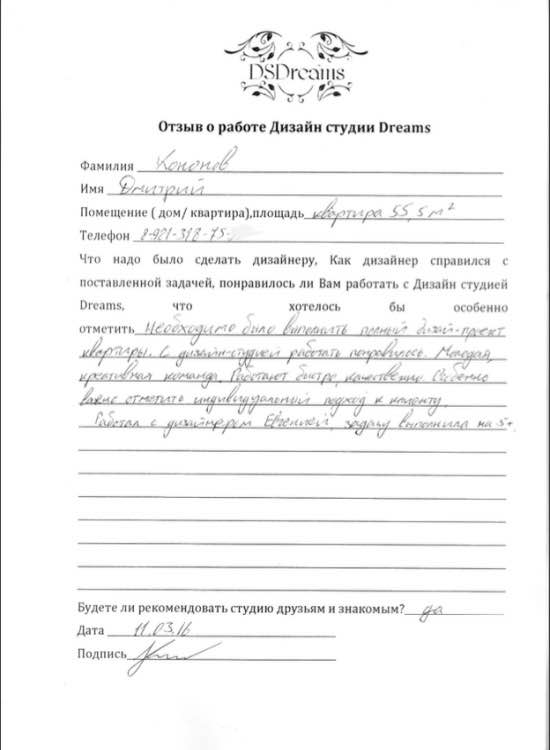 DSDreams
Отзыв о работе Дизайн студии Dreams
Фамилия Кононов
Имя Дмитрий
Помещение ( дом/ квартира),площадь квартира 55,5 м²
Телефон 8-921-318-75-
Что надо было сделать дизайнеру, Как дизайнер справился с
поставленной задачей, понравилось ли Вам работать с Дизайн студией
Dreams, что хотелось бы особенно
отметить Необходимо было выполнить полный дизайн-проект
квартиры. С дизайн-студией работать понравилось. Молодая,
креативная команда. Работают быстро, качественно. Особенно
важно отметить индивидуальный подход к клиенту.
Работал с дизайнером Евгенией, задачу выполнила на 5+.
Будете ли рекомендовать студию друзьям и знакомым? да
Дата 11.03.16
Подпись